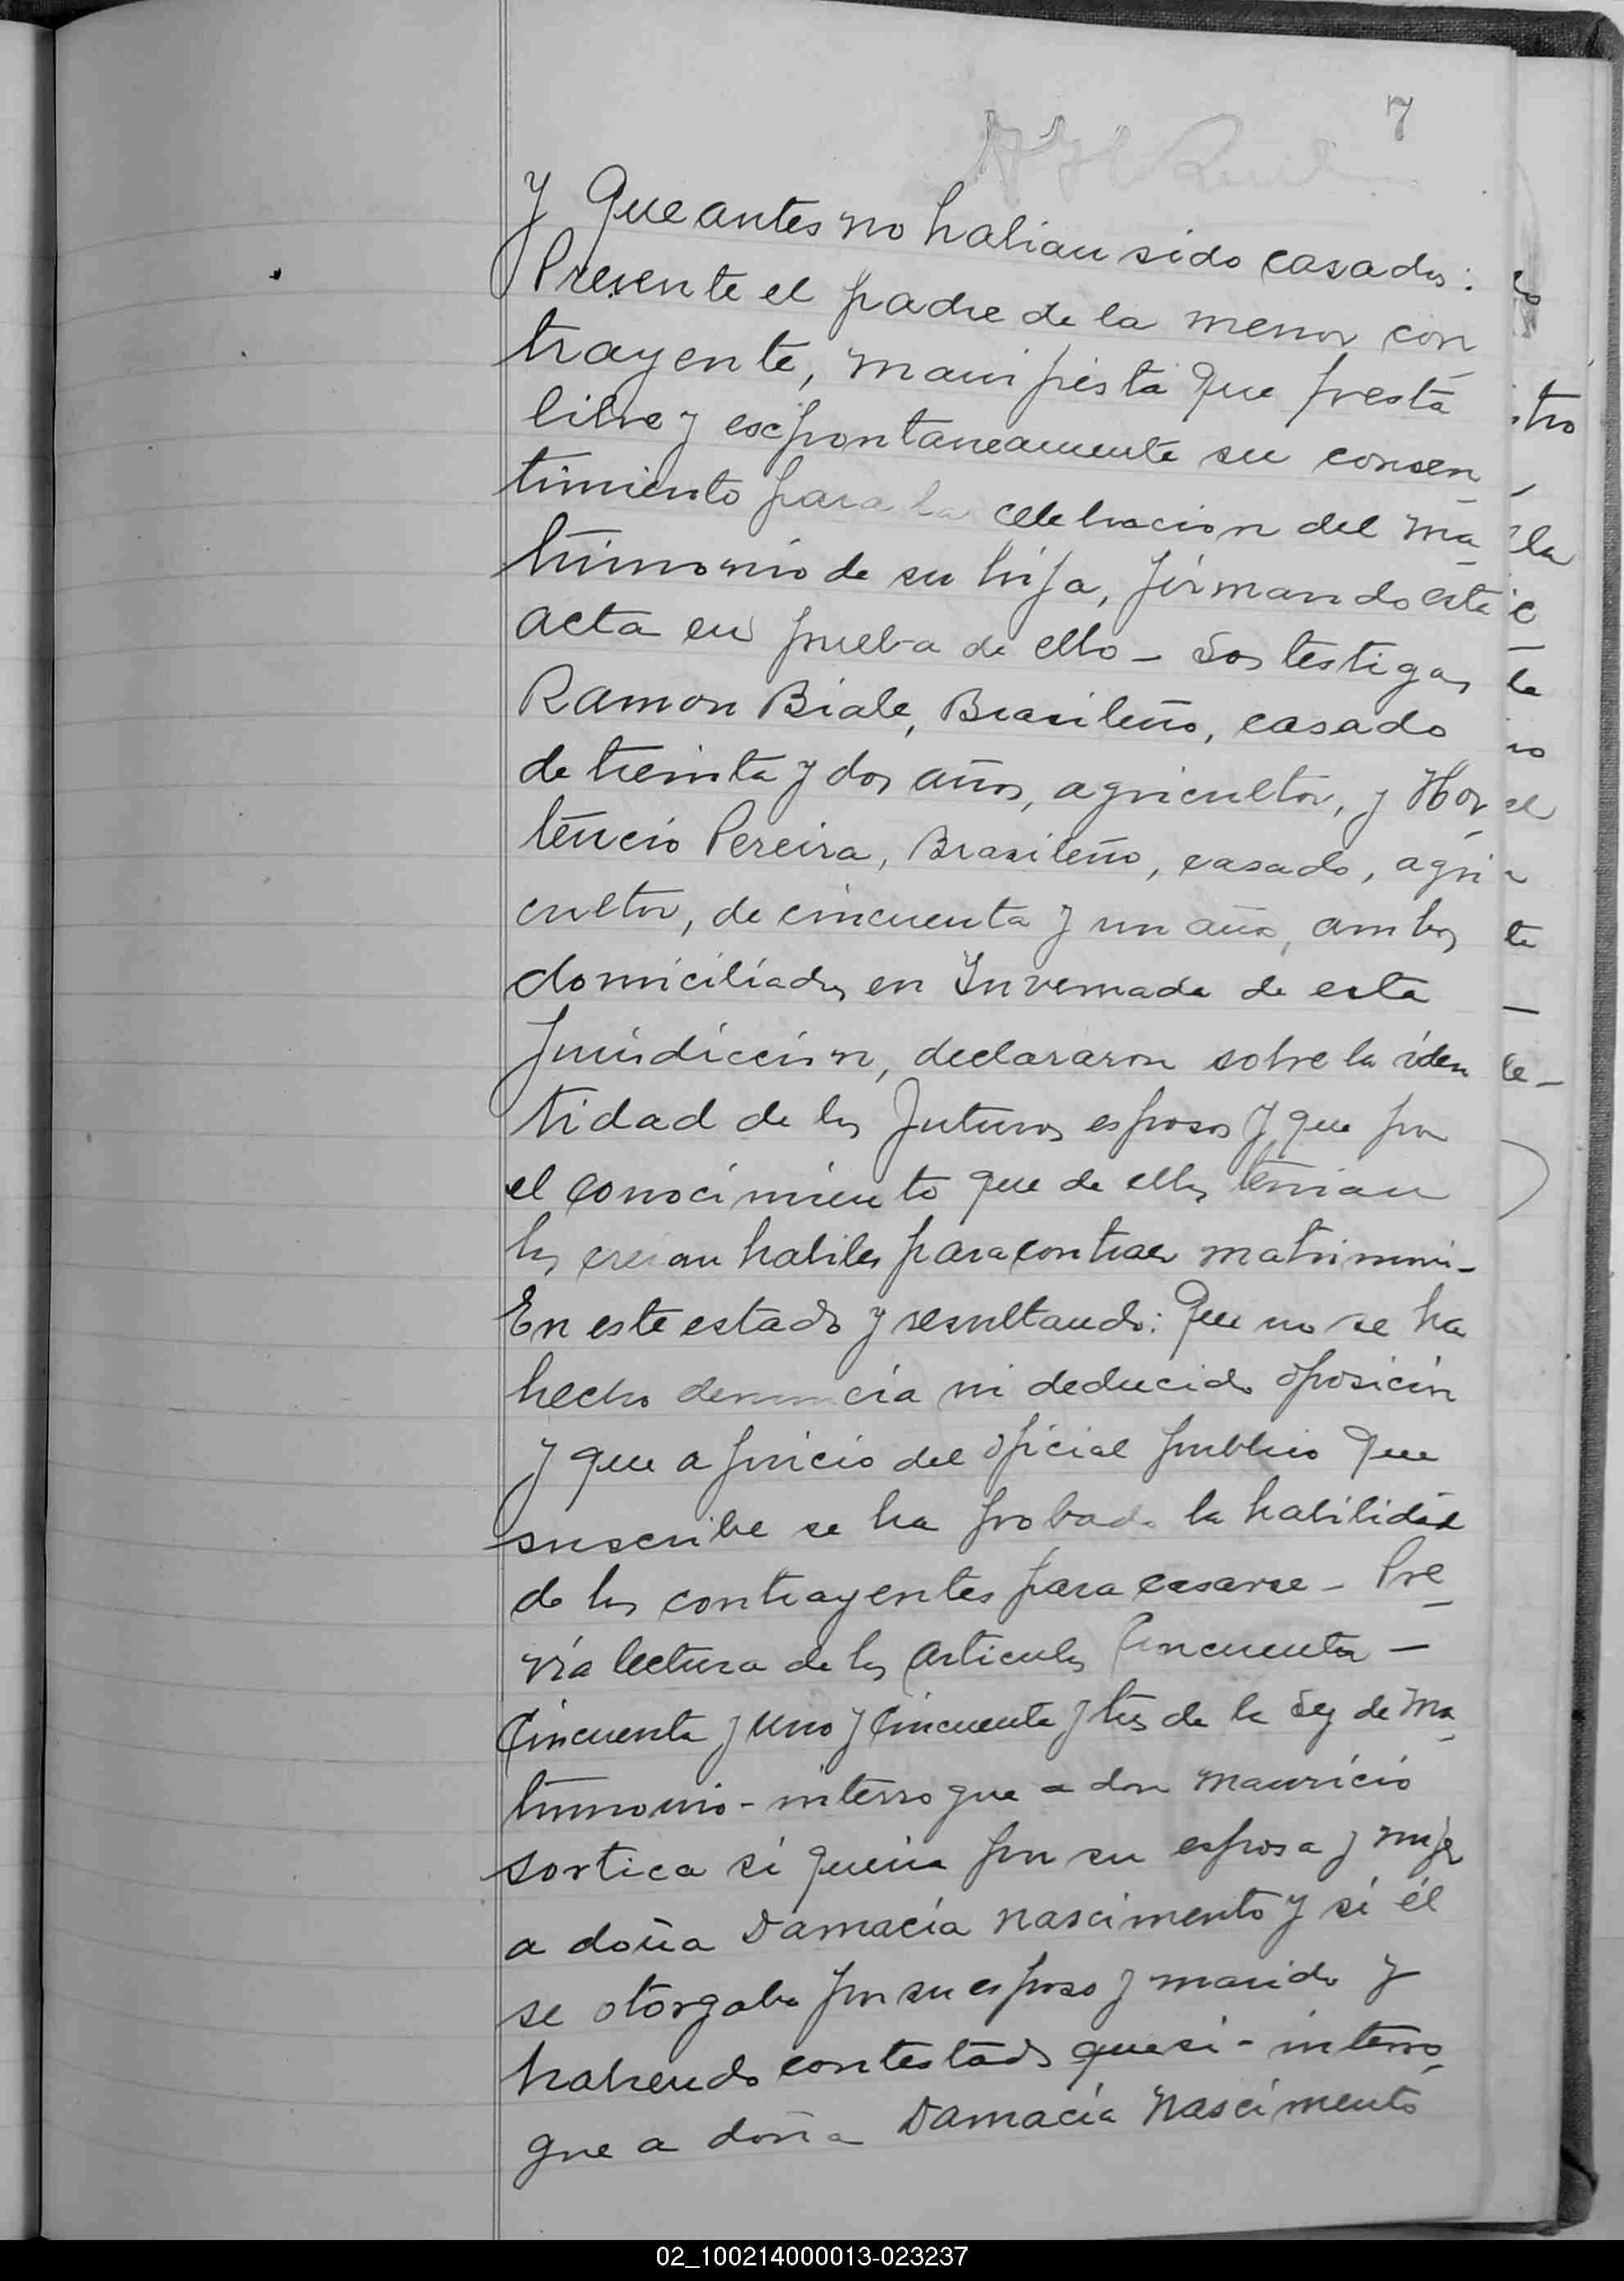 7
y Que antes no habian sido casados:
Presente el padre de la menor con_
trayente, manifiesta que presta
libre y escpontaneamente su consen_
timiento para la celebracion del ma_
trimonio de su hija, firmando esta
acta en prueba de ello - Los testigos
Ramon Biale, Brasileño, casado
de treinta y dos años, agricultor, y Hor_
tencio Pereira, Brasileño, casado, agri
cultor, de cincuenta y un año, ambos
domiciliados en Invernada de esta
Jurisdiccion, declararon sobre la iden
tidad de los futuros esposos y que por
el conocimiento que de ellos tenian
los creian habiles para contraer matrimoni-
En este estado y resultando: Que no se ha
hecho denuncia ni deducido oposicion
y que a juicio del oficial publico que
suscribe se ha probado la habilidad
de los contrayentes para casarse - Pre_
via lectura de los articulos Cincuenta -
Cincuenta y uno y Cincuenta y tres de la Ley de Ma_
trimonio - interrogue a don Mauricio
Sortica si queria por su esposa y mujer
a doña Damacia Nascimento y si él
se otorgaba por su esposo y marido y
habiendo contestado que si - interro_
gue a doña Damacia Nascimento
02_100214000013-023237